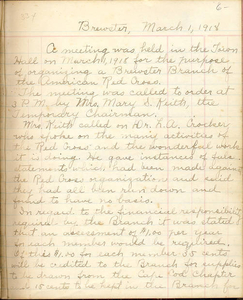 6-
Brewster, March 1, 1918
A meeting was held in the Town
Hall on March 1, 1918 for the purpose
of organizing a Brewster Branch of
the American Red Cross.
The meeting was called to order at
3 P.M. by Mrs. Mary S. Keith, the
Temporary Chairman.
Mrs. Keith called on Mr. H.A. Crocker
who spoke on the many activities of
the Red Cross and the wonderful work
it is doing. He gave instances of false
statements which had been made against
the Red Cross organization and said
they had all been run down and
found to have no basis.
In regard to the financial responsibility
required by the Branch it was stated
that an assessment of $1.00 per year
on each member would be required.
Of this $1.00 for each member 35 cents
will be credited to the Branch for supplies
to be drawn from the Cape Cod Chapter
15 cents to be kept in the Branch for